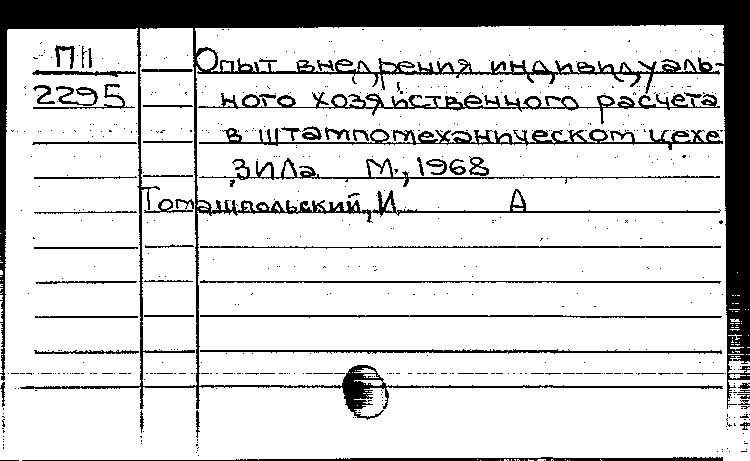 П11 Опыт внедрения индивидуаль-
2295 ного хозяйственного расчета
в штампомеханическом цехе
ЗИЛа М., 1968
Томашпольский, И. А